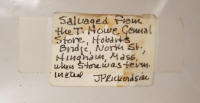 Salvaged from
the T. Howe General
Store, Hobarts
Bridge, North St.,
Hingham, Mass,
when store was
J P Richardson